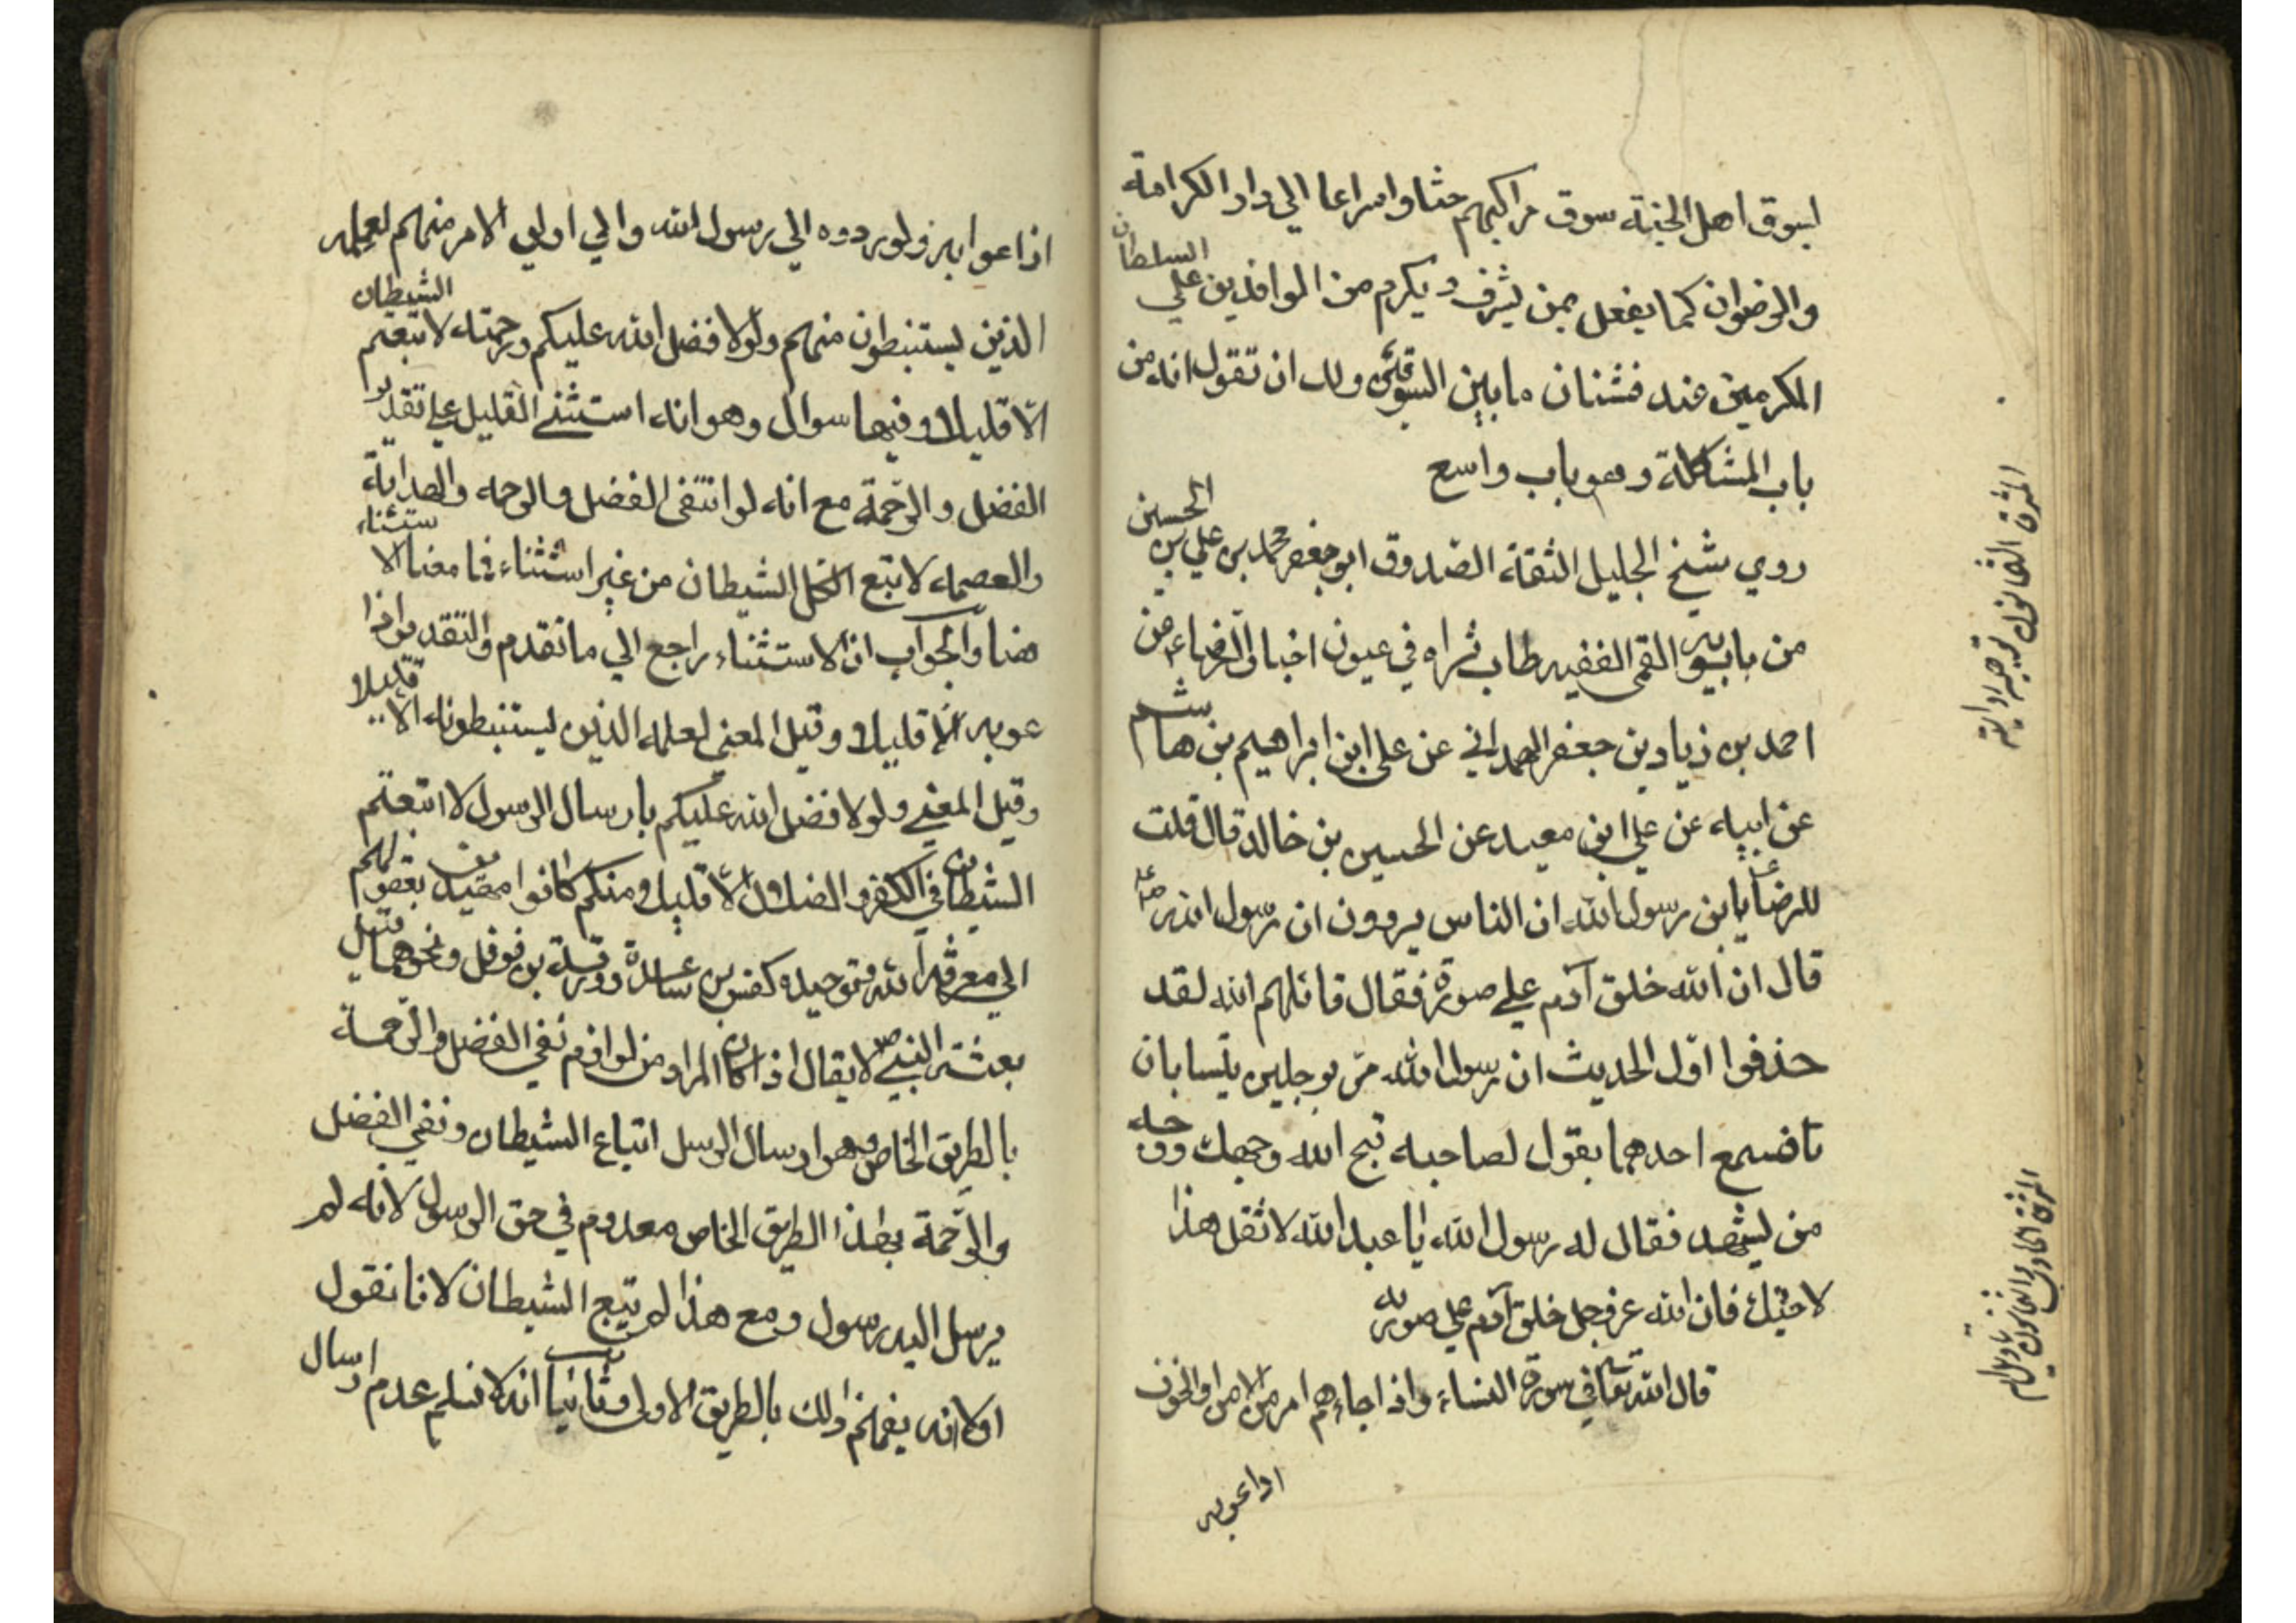 لسوق اهل الجنة سوق مراكبهم حثا واسراعا الي دار الكرامة
والرضوان كما يفعل بمن يشرف ويكرم من الوافدين علي السلطان
المكرمين عنده فشتان ما بين السوقين ولك ان تقول انه من
باب المشكلة وهو باب واسع
روي شيخ الجليل الثقة الصدوق ابو جعفر محمد بن علي بن الحسين
من بابويه القمى الفقيه طاب ثراه في عيون اخبار الرضاء ع من
احمد بن زياد بن جعفر الهمداني عن على ابن ابراهيم بن هاشم
عن ابيه عن علي ابن معبد عن الحسين بن خالد قال قلت
للرضا ع يا بن رسول الله ان الناس يروون ان رسول الله ص
قال ان الله خلق آدم علي صورة فقال قاتلهم الله لقد
حذفوا اول الحديث ان رسول الله مر برجلين يتسابان
فسمع احدهما يقول لصاحبه قبح الله وجهك ووجه
من يشبهه فقال له رسول الله يا عبد الله لا تقل هذا
لاخيك فان الله عز وجل خلق آدم علي صورته
قال الله تعا في سورة النساء واذا جاءهم امر من الامن او الخوف
اذاعو به
المشرق الثمانون توجيه ورواية
المشرق الحادي والثمانون تاويل
اذاعوا به ولو ردوه الي رسول الله والي اولي الامر منهم لعلمه
الذين يستنبطون منهم ولولا فضل الله عليكم ورحمته لاتبعتم الشيطان
الا قليلا وفيها سوال وهو انه استثني القليل علي تقدير
الفضل والرحمة مع انه لو انتفى الفضل والرحمه والهداية
والعصمه لاتبع الكل الشيطان من غير استثناء فما معنا الاستثناء
هنا والجواب ان الاستثناء راجع الي ما تقدم والتقدير اذا
عو به الا قليلا وقيل المعني لعلمه الذين يستنبطونه الا قليلا
وقيل المعني ولولا فضل الله عليكم بارسال الرسول لاتبعتم
الشيطان في الكفر والضلال الا قليلا ومنكم كانوا بعقولهم
الي معرفة الله وتوحيده كقس بن ساعدة وورقة بن نوفل ونحوهما قبل
بعثة النبي ص لا يقال اذا كان المراد من لوازم نفي الفضل والرحمة
بالطريق الخاص وهو ارسال الرسل اتباع الشيطان ونفي الفضل
والرحمة بهذا الطريق الخاص معدوم في حق الرسول لانه لم
يرسل اليه رسول ومع هذا لم يتبع الشيطان لانا نقول
اولا انه يفهم ذلك بالطريق الاولي وثانيا انه لا نسلم عدم ارسال